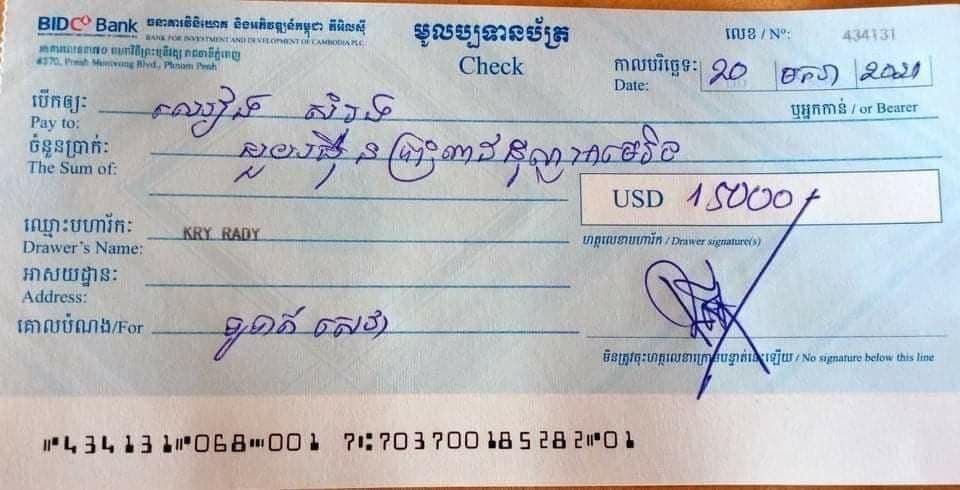 BIDC Bank ធនាគារវិនិយោគ និងអភិវឌ្ឍន៍កម្ពុជា ភីអិលស៊ី
BANK FOR INVESTMENT AND DEVELOPMENT OF CAMBODIA PLC.
#370, Preah Monivong Blvd., Phnom Penh
មូលប្បទានប័ត្រ
Check
លេខ / Nº: 434131
កាលបរិច្ឆេទ: 20 មករា 2021
Date:
បើកឲ្យ:
Pay to:
ឬអ្នកកាន់ / or Bearer
ចំនួនប្រាក់:
The Sum of:
USD 15000
ឈ្មោះមហារីក:
Drawer's Name: KRY RADY
ហត្ថលេខាមហារីក / Drawer signature(s)
អាសយដ្ឋាន:
Address:
គោលបំណង/For
មិនត្រូវចុះហត្ថលេខាក្រោមបន្ទាត់នេះឡើយ / No signature below this line
⑈434131⑈068⑉001 7⑆703700185282⑈01